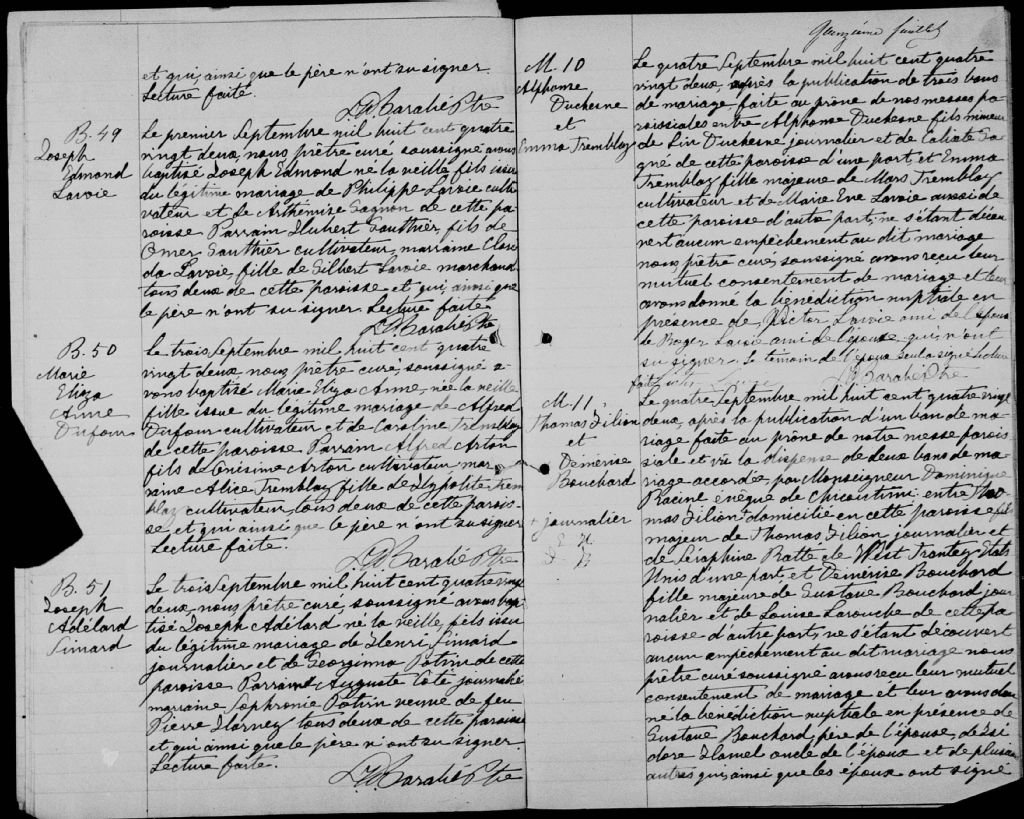 et qui, ainsi que le père n'ont su signer.
Lecture faite.
B. 49
Joseph
Edmond
Lavoie
Le premier Septembre mil huit cent quatre
vingt deux, nous prêtre curé soussigné avons
baptisé Joseph Edmond né la veille fils issu
du légitime mariage de Philippe Lavoie culti
vateur et de Arthemise Gagnon de cette pa
roisse Parrain Hubert Gauthier, fils de
Omer Gauthier cultivateur, marraine
da Lavoie, fille de Gilbert Lavoie marchand
tous deux de cette paroisse et qui, ainsi que
le père n'ont su signer. Lecture faite
B. 50
Marie
Eliza
Anne
Dufour
Le trois Septembre mil huit cent quatre
vingt deux nous prêtre curé, soussigné a-
vons baptisé Marie Eliza Anne, née la veille
fille issue du légitime mariage de Alfred
Dufour cultivateur et de Caroline Tremblay
de cette paroisse Parrain Alfred
fils de cultivateur, mar
raine Alice Tremblay fille de Hypolite Trem
blay cultivateur, tous deux de cette parois-
se, et qui ainsi que le père n'ont su signer
Lecture faite.
B. 51
Joseph
Adélard
Simard
Le trois Septembre mil huit cent quatre vingt
deux, nous prêtre curé, soussigné avons bap
tisé Joseph Adélard, né la veille, fils issu
du légitime mariage de Henri Simard
journalier et de Georginna Potvin de cette
paroisse Parrain Auguste Coté journalier
marraine Sophronie Potvin veuve de feu
Pierre Harvey tous deux de cette paroisse
et qui ainsi que le père n'ont su signer.
Lecture faite.
M. 10
Alphonse
Duchesne
et
Emma Tremblay
Le quatre Septembre mil huit cent quatre
vingt deux, après la publication de trois bans
de mariage faite au prône de nos messes pa
roissiales entre Alphonse Duchesne fils mineur
de Duchesne journalier et de Ga
gné de cette paroisse d'une part, et Emma
Tremblay fille majeure de Mars Tremblay
cultivateur et de Marie Eve Lavoie aussi de
cette paroisse d'autre part; ne s'étant décou
vert aucun empêchement au dit mariage
nous prêtre curé, soussigné avons reçu leur
mutuel consentement de mariage et leur
avons donné la bénédiction nuptiale en
présence de Victor Lavoie ami de l'époux
de Roger Lavoie ami de l'épouse, qui n'ont
su signer. Le témoin de l'époux seul a signé Lecture
faite
M. 11
Thomas Filion
et
Démérise
Bouchard
+ journalier
Le quatre Septembre mil huit cent quatre vingt
deux, après la publication d'un ban de ma-
riage faite au prône de notre messe parois-
siale et vu la dispense de deux bans de ma-
riage accordée, par Monseigneur Dominique
Racine évêque de Chicoutimi entre Tho
mas Filion + domicilié en cette paroisse fils
majeur de Thomas Filion journalier et
de Séraphine Batte de West Etats
Unis d'une part, et Démérise Bouchard
fille majeure de Gustave Bouchard jour
nalier et de Louise Larouche de cette pa
roisse d'autre part, ne s'étant découvert
aucun empêchement au dit mariage nous
prêtre curé soussigné avons reçu leur mutuel
consentement de mariage et leur avons don
né la bénédiction nuptiale en présence de
Gustave Bouchard père de l'épouse, de Isi
dore Hamel oncle de l'époux et de plusieurs
autres qui, ainsi que les époux ont signé